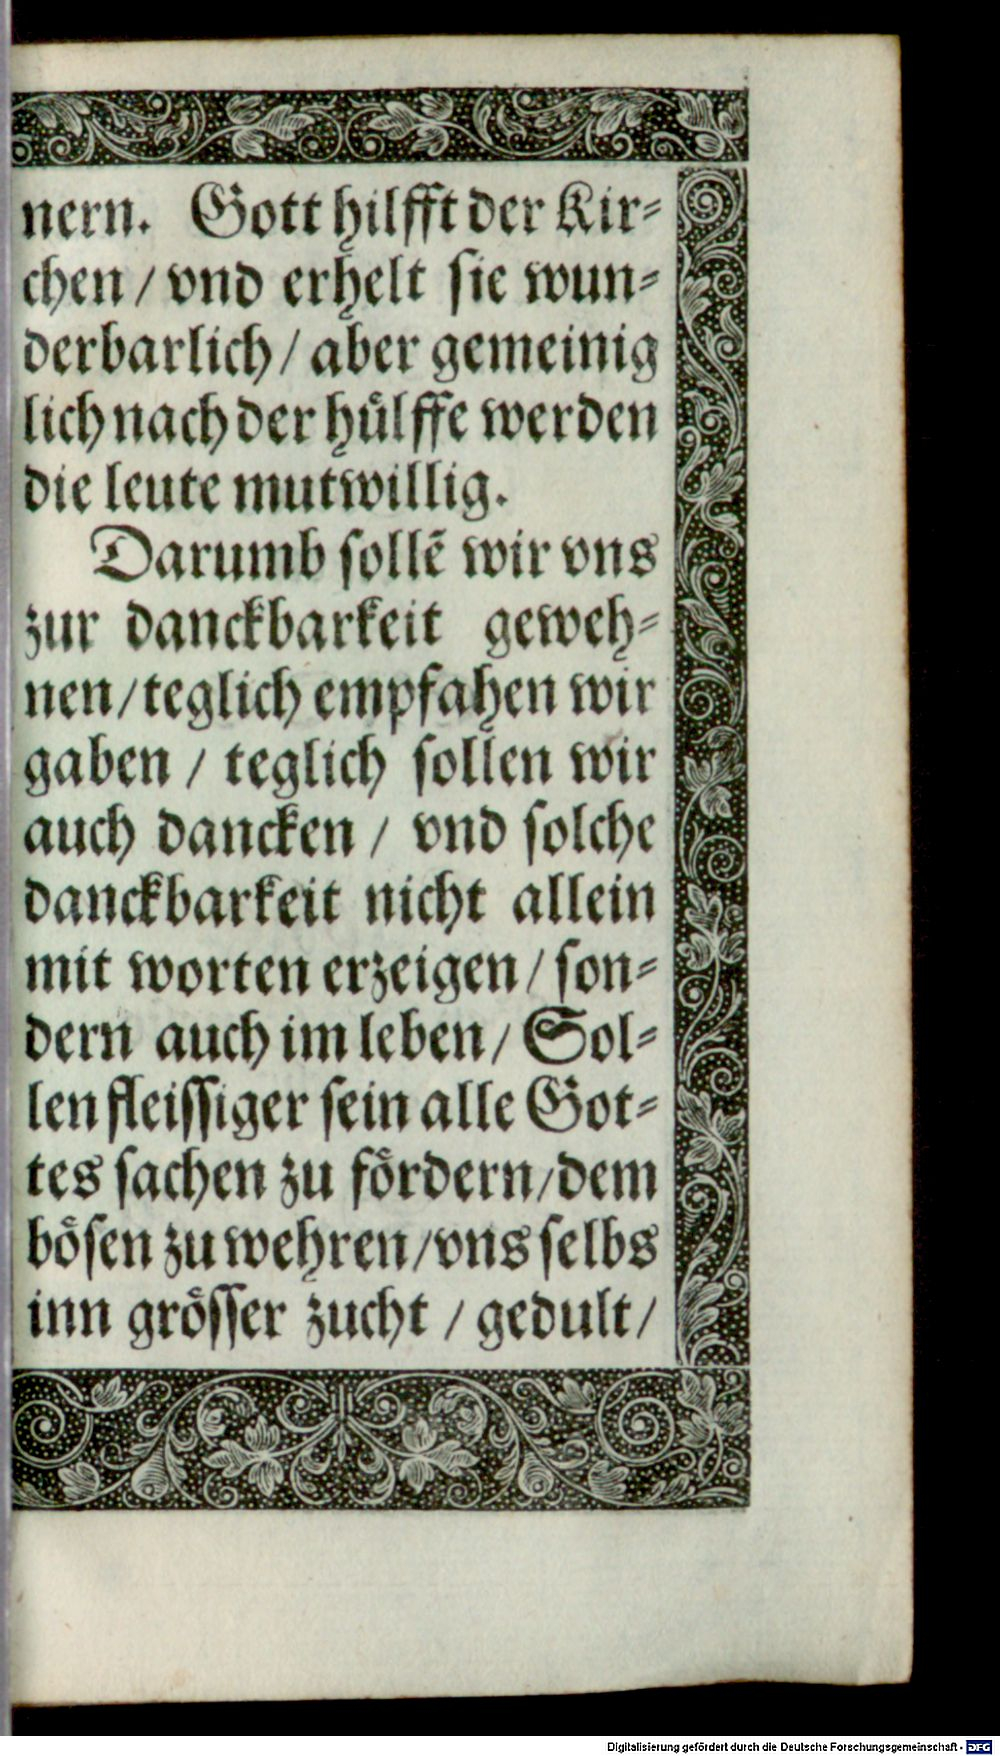 nern. Gott hilfft der Kir⸗
chen / vnd erhelt sie wun⸗
derbarlich / aber gemeinig
lich nach der huͤlffe werden
die leute mutwillig.
Darumb sollẽ wir vns
zur danckbarkeit geweh⸗
nen / teglich empfahen wir
gaben / teglich sollen wir
auch dancken / vnd solche
danckbarkeit nicht allein
mit worten erzeigen / son⸗
dern auch im leben / Sol⸗
len fleissiger sein alle Got⸗
tes sachen zu foͤrdern / dem
boͤsen zu wehren / vns selbs
inn groͤsser zucht / gedult /
Digitalisierung gefördert durch die Deutsche Forschungsgemeinschaft - DFG